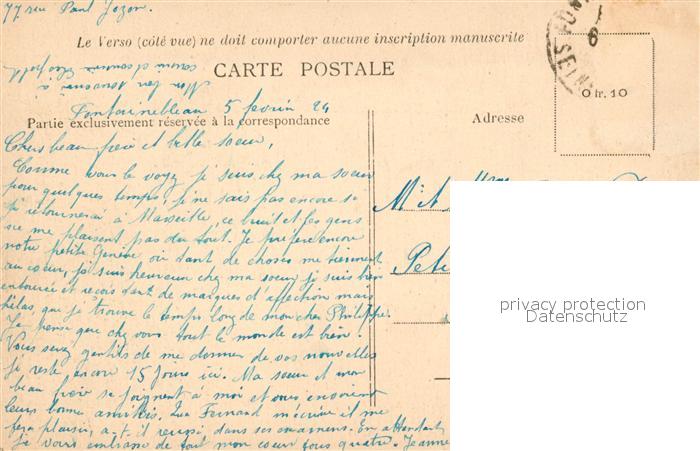 77 rue Paul Jozon.
Le Verso (côté vue) ne doit comporter aucune inscription manuscrite
Mon bon souvenir à
CARTE POSTALE
Fontainebleau 5 fevrin 24
Partie exclusivement réservée à la correspondance
Adresse
0 fr. 10
SEINE
Chers beau frère et belle soeur,
Comme vous le voyez je suis chez ma soeur
pour quelques temps, je ne sais pas encore si
je retournerai à Marseille, ce bruit et ses gens
ne me plaisent pas du tout. Je prefere encore
notre petite Genève où tant de choses me tiennent
au coeur, je suis heureux chez ma soeur je suis bien
entourée et reçois tant de marques d'affection mais
hélas, que je trouve le temps long de mon cher Philippe.
Je pense que chez vous tout le monde est bien.
Vous serez gentils de me donner de vos nouvelles
je reste encore 15 jours ici. Ma soeur et mon
beau frère se joignent à moi et vous envoient
leurs bonnes amitiés. Que Fernand m'écrive il me
fera plaisir, a-t-il reussi dans ses examens. En attendant
je vous embrasse de tout mon coeur tous quatre. Jeanne
privacy protection
Datenschutz